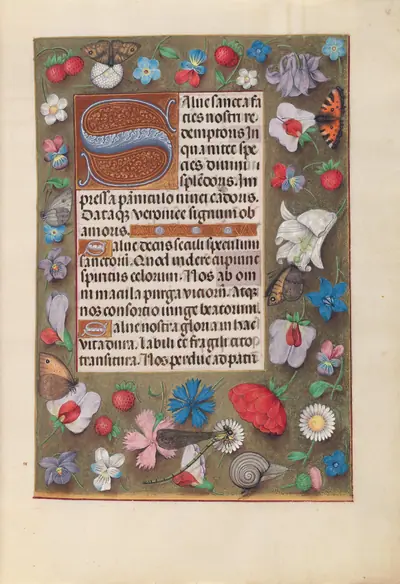 Salue sancta fa
cies nostri re
demptoris In
qua nitet spe
cies diuini
splēdoris. Im
pressa pāniculo niuei cādoris.
Dataqȝ veronice signum ob
amoris.
Salue decus seculi speculum
sanctorū. Quod uidere cupiunt
spiritus celorum. Nos ab om
ni macula purga viciorū. atqȝ
nos consortio iunge beatorum.
Salue nostra gloria in hac
vita dura. labili et fragili cito
transitura. Nos perduc ad patriā